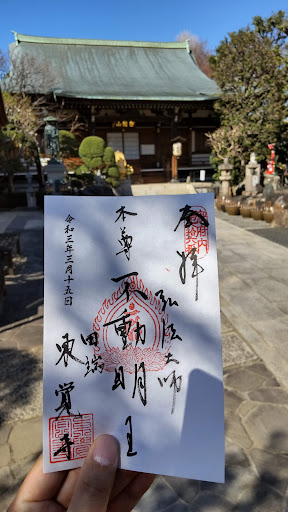 奉拝
弘法大師
本尊
不動明王
田端
東覚寺
令和三年三月十五日